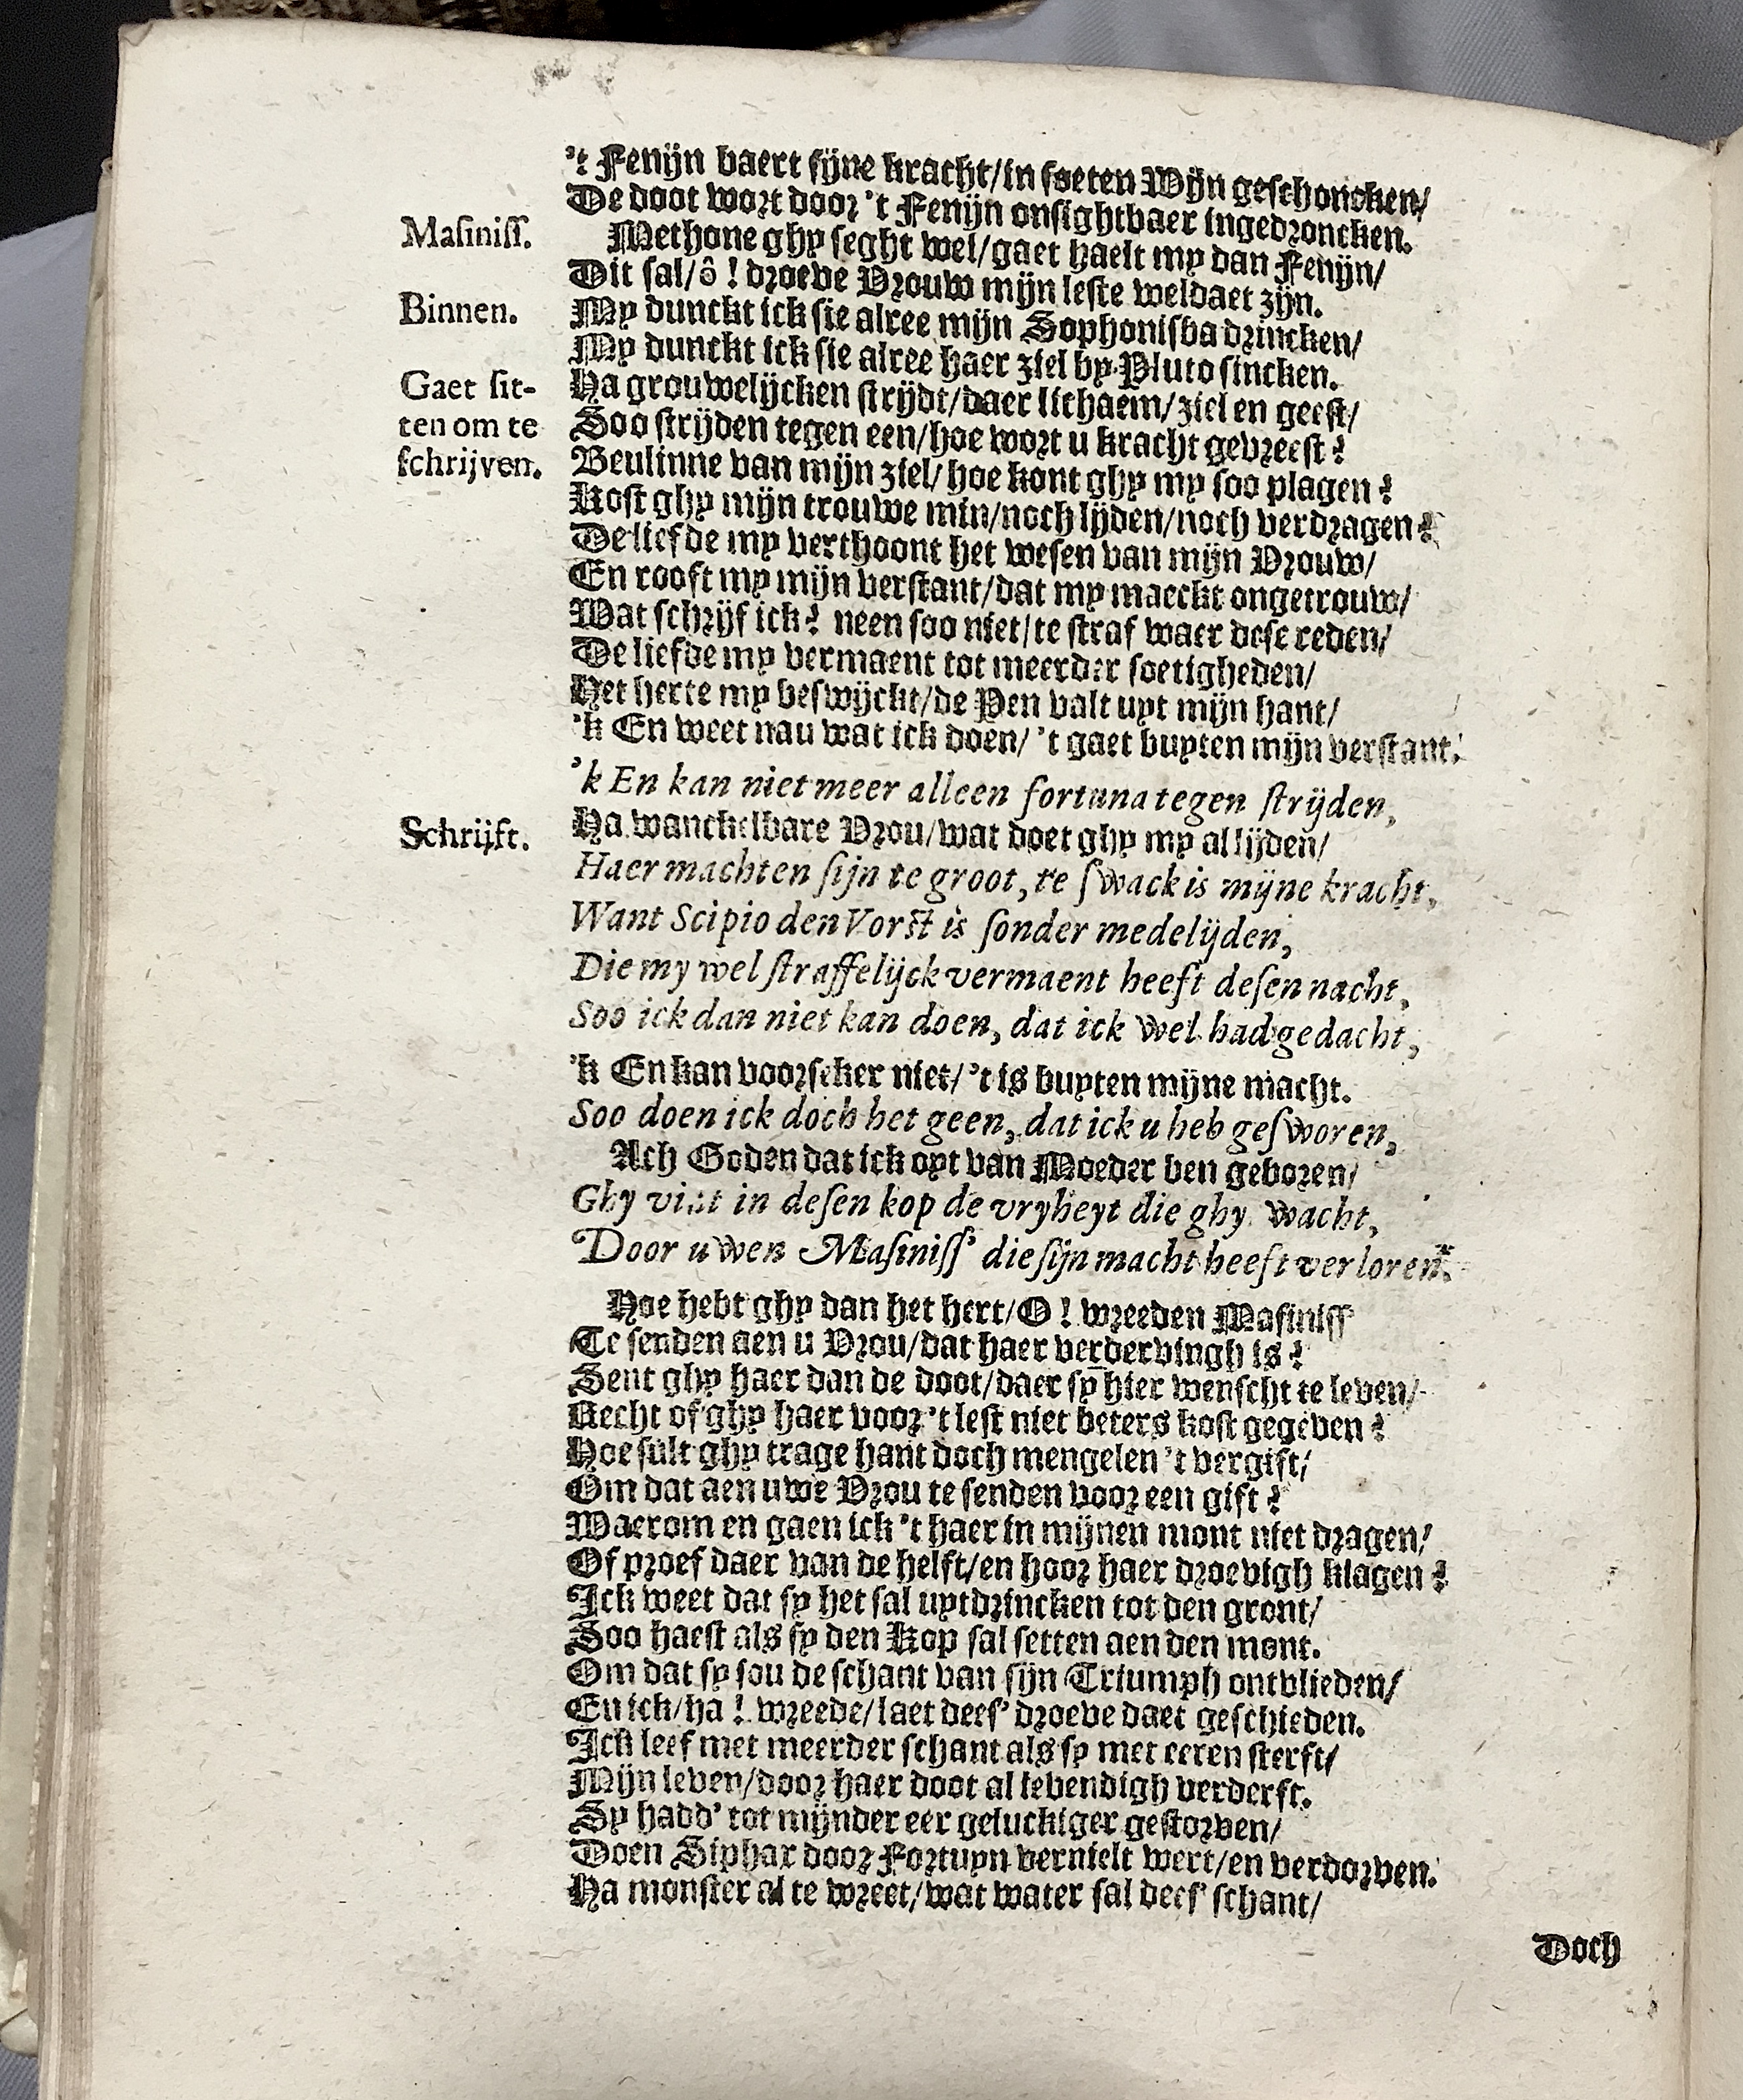 't Fenijn baert sijne kracht/in soeten Wijn geschoncken/
De doot wort door 't Fenijn onsightbaer ingedroncken.
Masiniss. Methone ghy seght wel/gaet haelt my dan Fenijn/
Dit sal/ô! droeve Vrouw mijn leste weldaet zijn.
Binnen. My dunckt ick sie alree mijn Sophonisba drincken/
My dunckt ick sie alree haer ziel by Pluto sincken.
Gaet sit- Ha grouwelijcken strijdt/daer lichaem/ziel en geest/
ten om te Soo strijden tegen een/hoe wort u kracht gevreest?
schrijven. Beulinne van mijn ziel/hoe kont ghy my soo plagen?
Kost ghy mijn trouwe min/noch lijden/noch verdragen?
De liefde my verthoont het wesen van mijn Vrouw/
En rooft my mijn verstant/dat my maeckt ongetrouw/
Wat schrijf ick? neen soo niet/te straf waer dese reden/
De liefde my vermaent tot meerder soetigheden/
Het herte my beswijckt/de Pen valt uyt mijn hant/
'k En weet nau wat ick doen/'t gaet buyten mijn verstant.
'k En kan niet meer alleen fortuna tegen strijden,
Schrijft. Ha wanckelbare Vrou/wat doet ghy my al lijden/
Haer machten sijn te groot, te swack is mijne kracht,
Want Scipio den Vorst is sonder medelijden,
Die my wel straffelijck vermaent heeft desen nacht,
Soo ick dan niet kan doen, dat ick wel had gedacht,
'k En kan voorseker niet/'t is buyten mijne macht.
Soo doen ick doch het geen, dat ick u heb gesworen,
Ach Goden dat ick oyt van Moeder ben geboren/
Ghy vint in desen kop de vryheyt die ghy wacht,
Door uwen Masiniss' die sijn macht heeft verloren.
Hoe hebt ghy dan het hert/O! wreeden Masiniss
Te senden aen u Vrou/dat haer verdervingh is?
Sent ghy haer dan de doot/daer sy hier wenscht te leven/
Recht of ghy haer voor 't lest niet beters kost gegeven?
Hoe sult ghy trage hant doch mengelen 't vergift/
Om dat aen uwe Vrou te senden voor een gift?
Waerom en gaen ick 't haer in mijnen mont niet dragen/
Of proef daer van de helft/en hoor haer droevigh klagen?
Ick weet dat sy het sal uytdrincken tot den gront/
Soo haest als sy den Kop sal setten aen den mont.
Om dat sy sou de schant van sijn Triumph ontvlieden/
En ick/ha! wreede/laet dees' droeve daet geschieden.
Ick leef met meerder schant als sy met eeren sterft/
Mijn leven/door haer doot al levendigh verderft.
Sy hadd' tot mijnder eer geluckiger gestorven/
Doen Siphax door Fortuyn vernielt wert/en verdorven.
Ha monster al te wreet/wat water sal dees' schant/
Doch